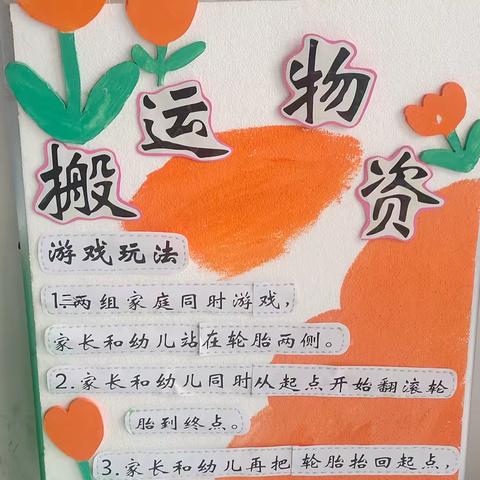 搬运物资
游戏玩法
1.三两组家庭同时游戏，
家长和幼儿站在轮胎两侧。
2.家长和幼儿同时从起点开始翻滚轮
胎到终点。
3.家长和幼儿再把轮胎抬回起点，